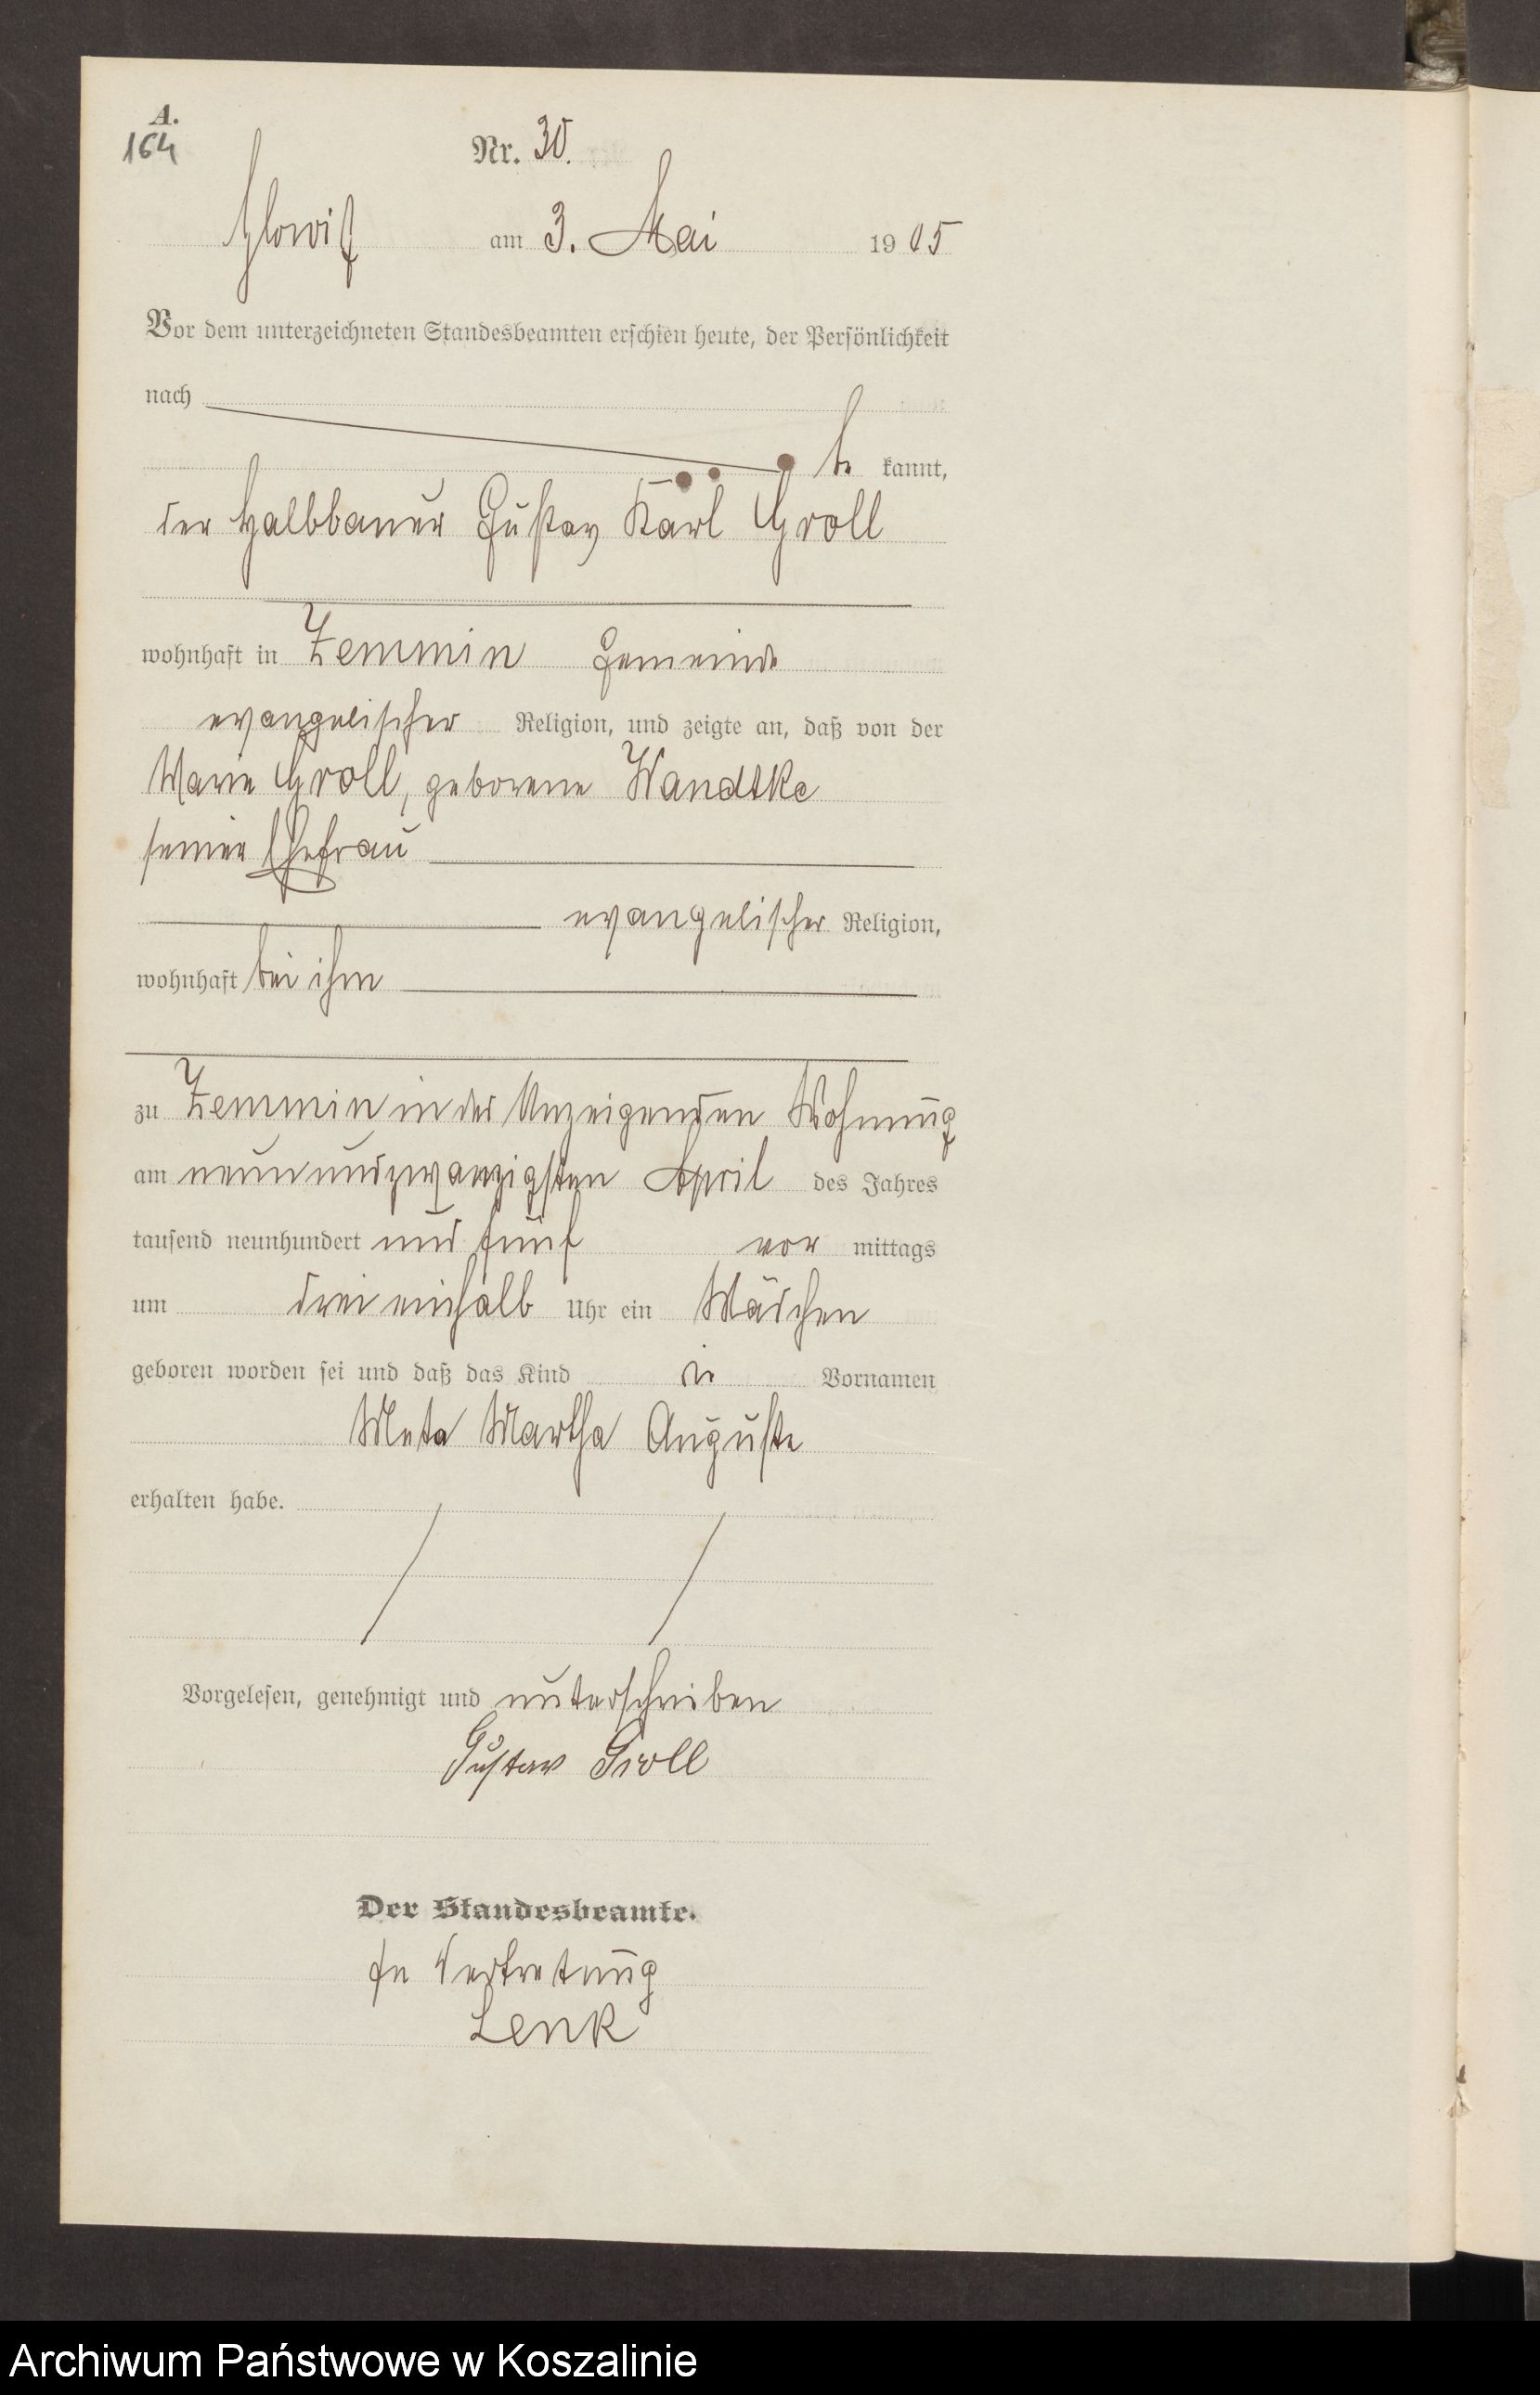 A.
164
Nr. 30.
Glowitz am 3. Mai 1905
Vor dem unterzeichneten Standesbeamten erschien heute, der Persönlichkeit
nach
be kannt,
der Halbbauer Gustav Karl Groll
wohnhaft in Zemmin Gemeinde
evangelischer Religion, und zeigte an, daß von der
Marie Groll, geborene Wandtke
seiner Ehefrau
evangelischer Religion,
wohnhaft bei ihm
zu Zemmin in des Anzeigenden Wohnung
am neunundzwanzigsten April des Jahres
tausend neunhundert und fünf vor mittags
um drei einhalb Uhr ein Mädchen
geboren worden sei und daß das Kind die Vornamen
Meta Martha Auguste
erhalten habe.
Vorgelesen, genehmigt und unterschrieben
Gustav Groll
Der Standesbeamte.
In Vertretung
Lenk
Archiwum Państwowe w Koszalinie